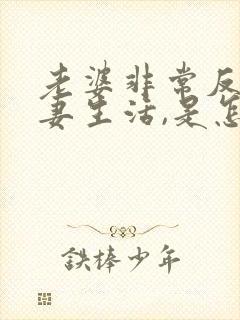 老婆非常反
妻生活,是怎
鉄棒少年